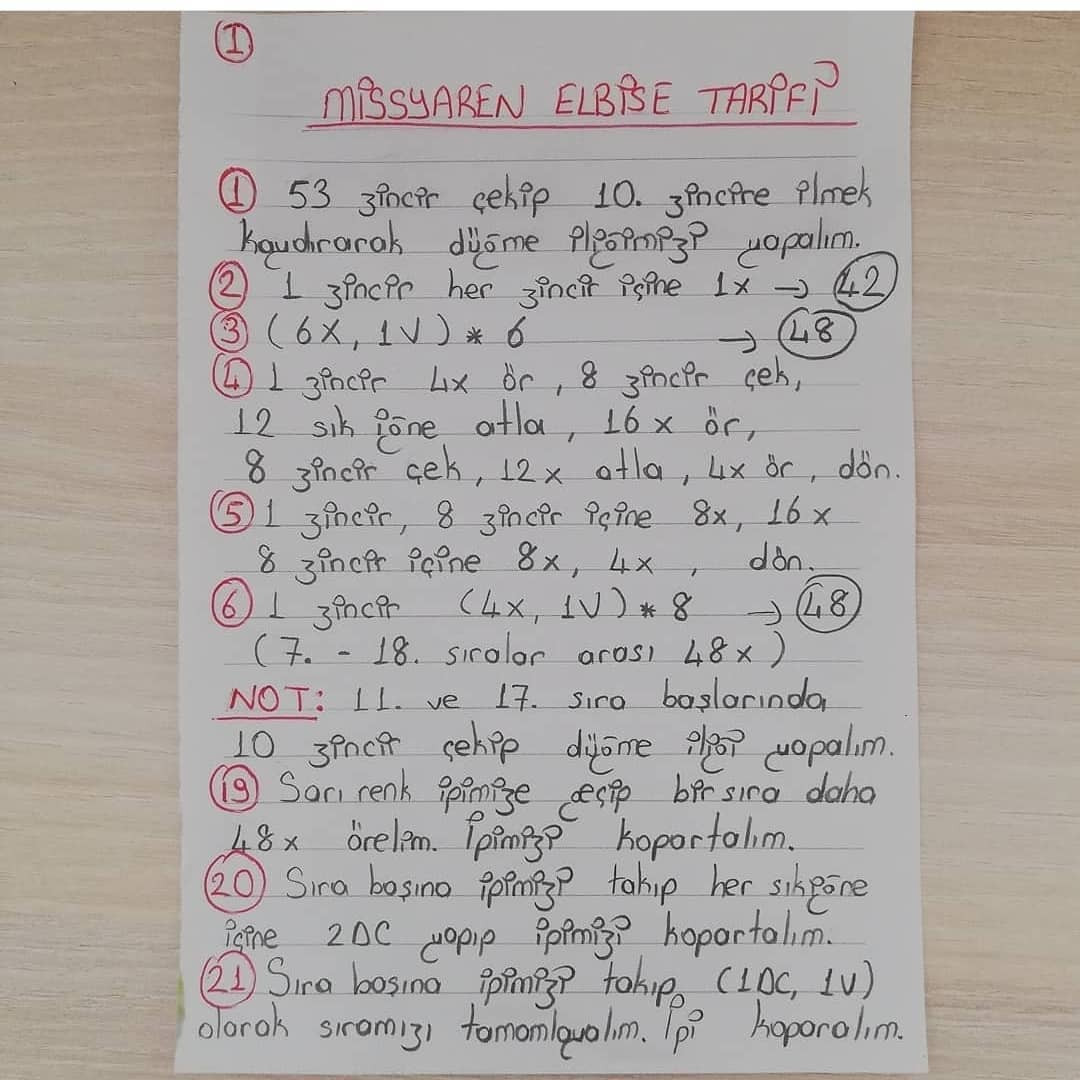 I
MİSSYAREN ELBİSE TARİFİ
1 53 zincir çekip 10. zincire ilmek
kaydırarak düğme iliğimizi yapalım.
2 1 zincir her zincir içine 1x → 42
3 (6X, 1V) * 6 → 48
4 1 zincir 4x ör, 8 zincir çek,
12 sık iğne atla, 16x ör,
8 zincir çek, 12x atla, 4x ör, dön.
5 1 zincir, 8 zincir içine 8x, 16x
8 zincir içine 8x, 4x, dön.
6 1 zincir (4x, 1V) * 8 → 48
(7. - 18. sıralar arası 48x)
NOT: 11. ve 17. sıra başlarında
10 zincir çekip düğme iliği yapalım.
19 Sarı renk ipimize geçip bir sıra daha
48x örelim. İpimizi kopartalım.
20 Sıra başına ipimizi takıp her sık iğne
içine 2DC yapıp ipimizi kopartalım.
21 Sıra başına ipimizi takıp (1DC, 1V)
olarak sıramızı tamamlayalım. İpi koparalım.